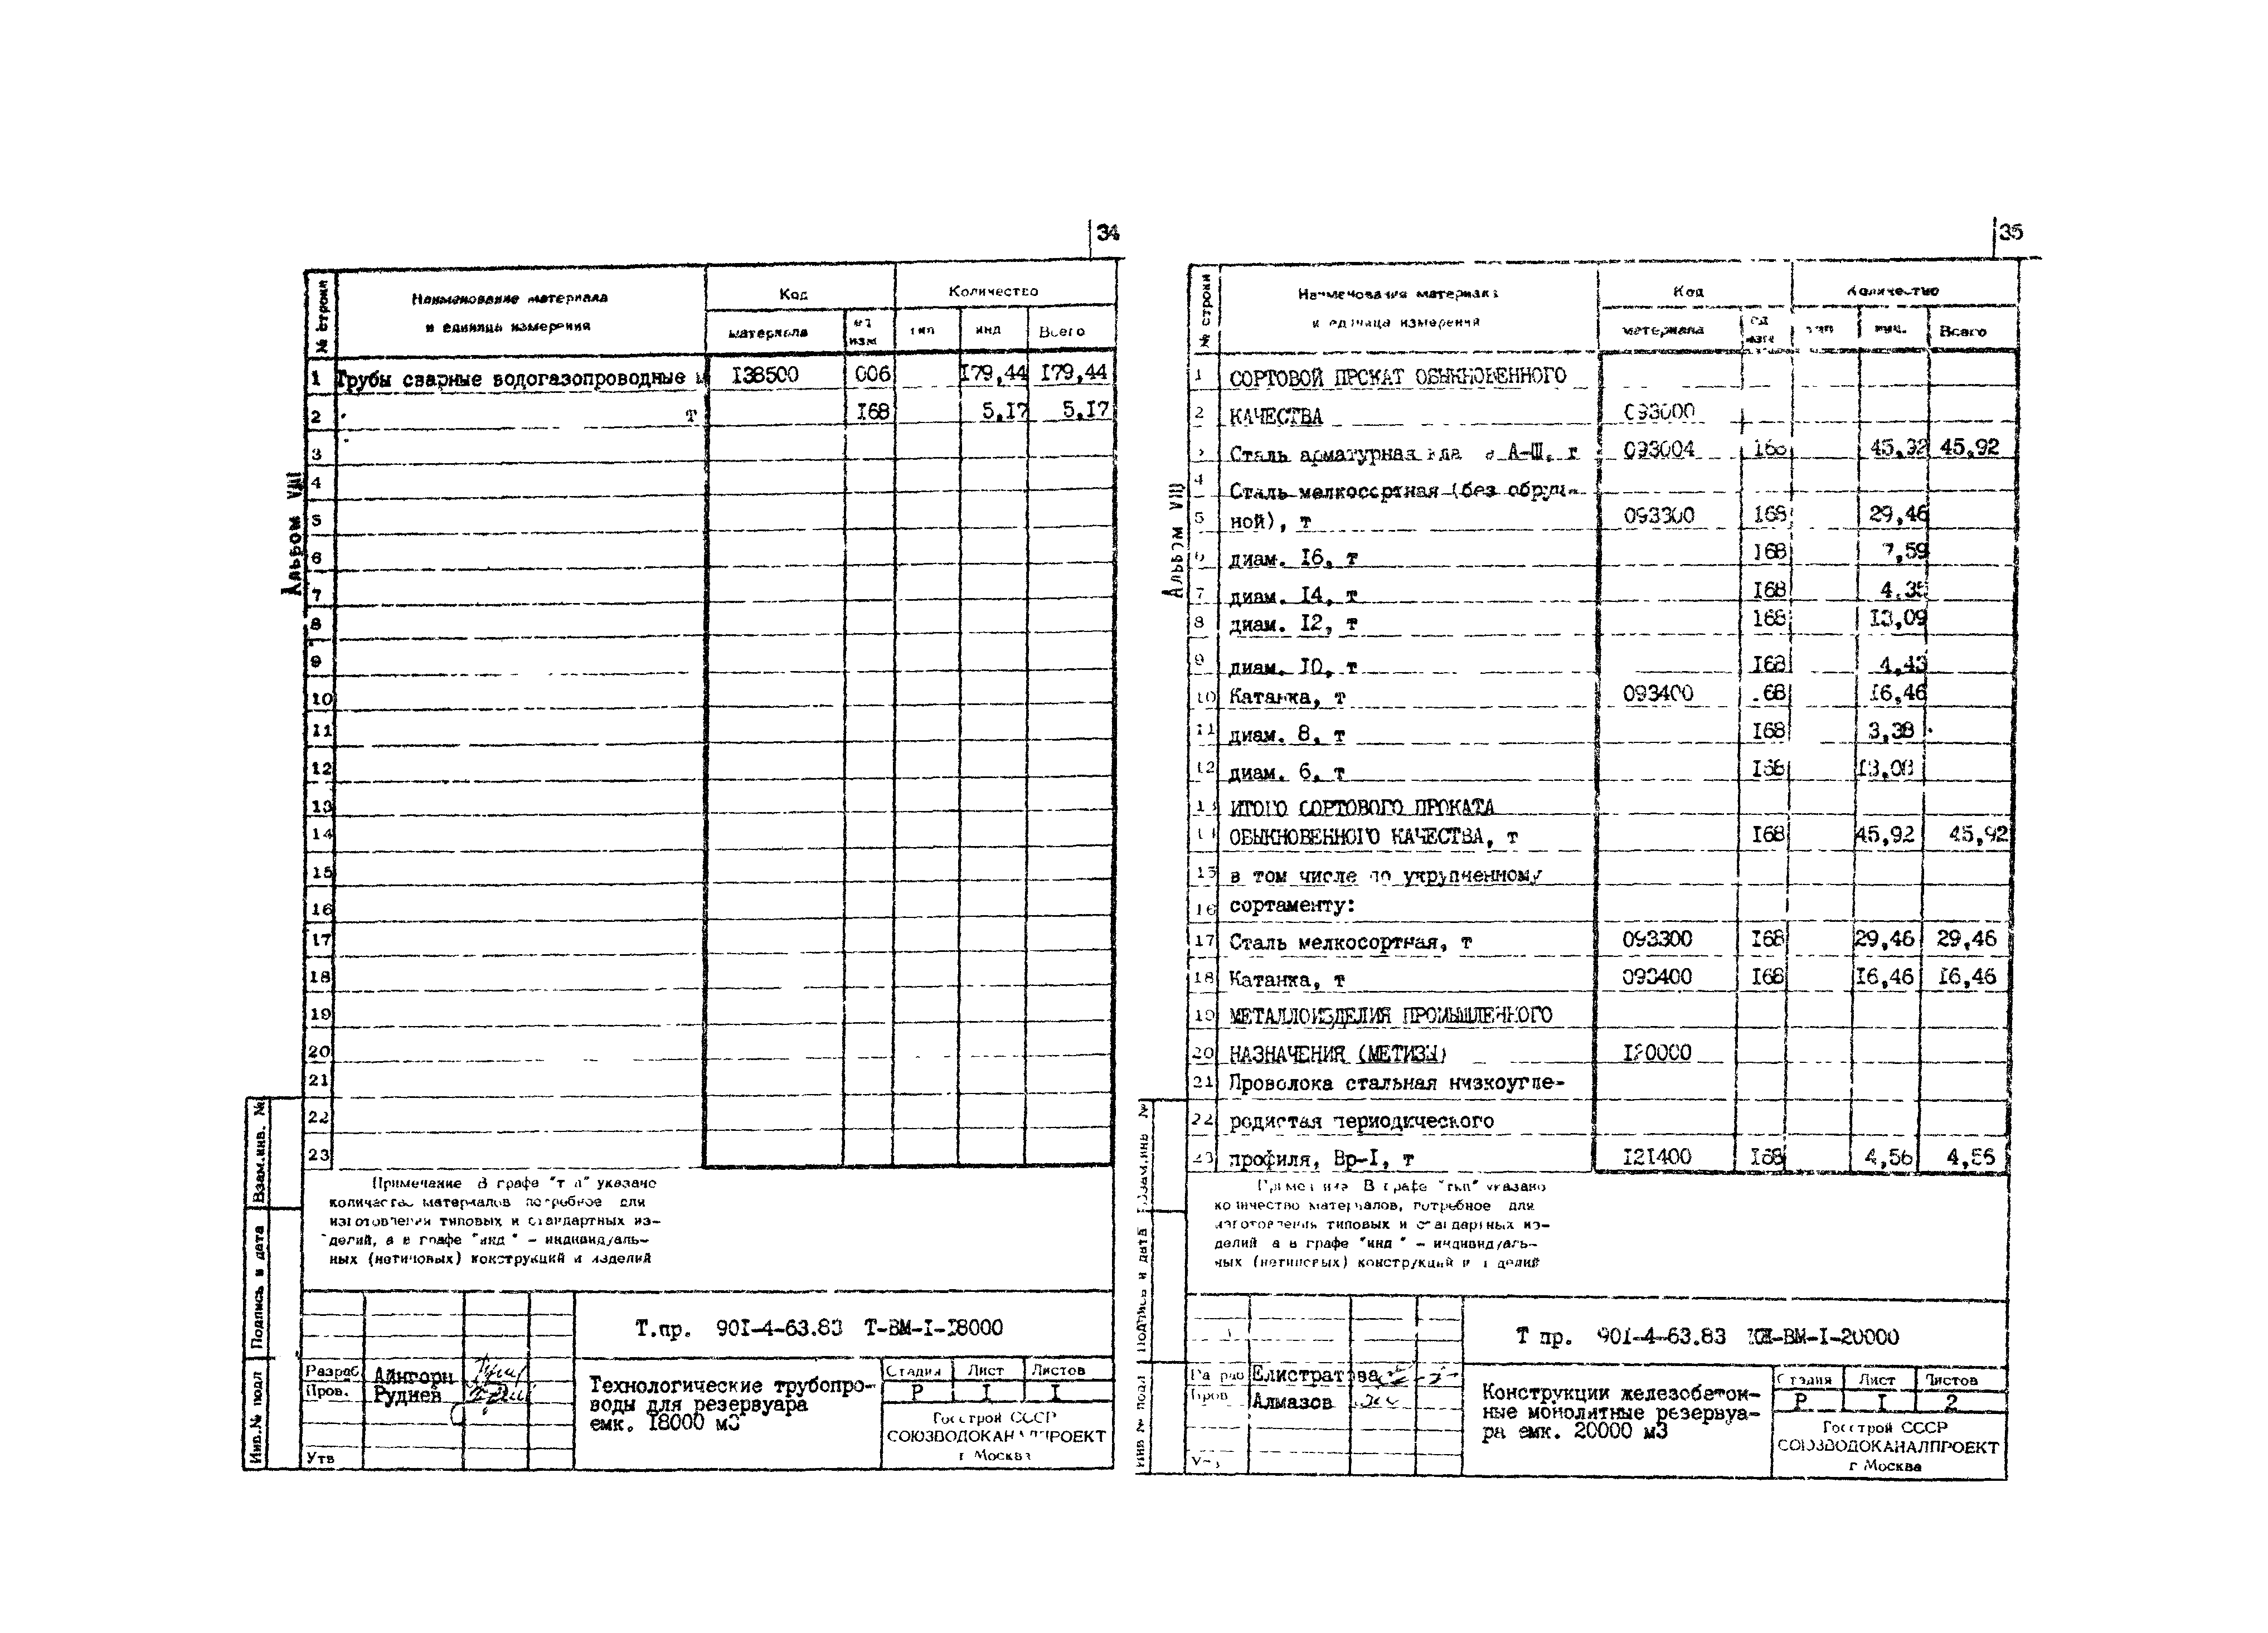 34
№ строки
Наименование материала
и единица измерения
Код
Количество
материала
ед
изм
тип
инд
Всего
1 Трубы сварные водогазопроводные м 138500 006 179,44 179,44
2 т 168 5,17 5,17
3
4
5
6
7
8
9
10
11
12
13
14
15
16
17
18
19
20
21
22
23
Альбом VIII
Взам.инв. №
Подпись и дата
Инв.№ подл
Примечание В графе "тип" указано
количество материалов потребное для
изготовления типовых и стандартных из-
делий, а в графе "инд" - индивидуаль-
ных (нетиповых) конструкций и изделий
Т.пр. 901-4-63.83 Т-ВМ-1-18000
Разраб Айнгорн
Пров. Руднев
Утв
Технологические трубопро-
воды для резервуара
емк. 18000 м3
Стадия Лист Листов
Р 1 1
Госстрой СССР
СОЮЗВОДОКАНАЛПРОЕКТ
г Москва
35
№ строки
Наименования материала
и единица измерений
Код
Количество
материала
ед
изм
тип
инд.
Всего
1 СОРТОВОЙ ПРОКАТ ОБЫКНОВЕННОГО
2 КАЧЕСТВА 093000
3 Сталь арматурная кла А-Ш, т 093004 168 45,92 45,92
4 Сталь мелкосортная (без обруч-
5 ной), т 093300 168 29,46
6 диам. 16, т 168 7,59
7 диам. 14, т 168 4,35
8 диам. 12, т 168 13,09
9 диам. 10, т 168 4,43
10 Катанка, т 093400 168 16,46
11 диам. 8, т 168 3,38
12 диам. 6, т 168 13,08
13 ИТОГО СОРТОВОГО ПРОКАТА
14 ОБЫКНОВЕННОГО КАЧЕСТВА, т 168 45,92 45,92
15 в том числе по укрупненному
16 сортаменту:
17 Сталь мелкосортная, т 093300 168 29,46 29,46
18 Катанка, т 093400 168 16,46 16,46
19 МЕТАЛЛОИЗДЕЛИЯ ПРОМЫШЛЕННОГО
20 НАЗНАЧЕНИЯ (МЕТИЗЫ) 120000
21 Проволока стальная низкоугле-
22 родистая периодического
23 профиля, Вр-1, т 121400 168 4,56 4,56
Альбом VIII
Взам.инв №
Подпись и дата
Инв № подл
Примечание В графе "тип" указано
количество материалов, потребное для
изготовления типовых и стандартных из-
делий а в графе "инд" - индивидуаль-
ных (нетиповых) конструкций и изделий
Т пр. 901-4-63.83 КЖ-ВМ-1-20000
Разраб Елистратова
Пров Алмазов
Утв
Конструкции железобетон-
ные монолитные резервуа-
ра емк. 20000 м3
Стадия Лист Листов
Р 1 2
Госстрой СССР
СОЮЗВОДОКАНАЛПРОЕКТ
г Москва